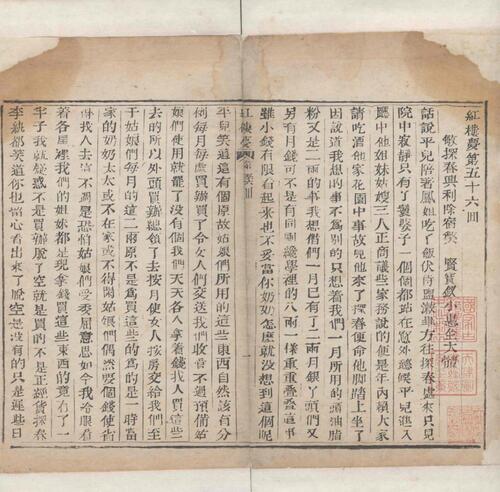 紅樓夢第五十六回
敏探春興利除宿弊　賢寶釵小惠全大體
話說平兒陪著鳳姐吃了飯伏侍盥漱畢方往探春處來只見
院中寂靜只有丫鬟婆子一個個都站在窓外聽候平兒進入
廳中他姊妹姑嫂三人正商議些家務說的便是年內賴大家
請吃酒他家花園中事故見他來了探春便命他脚踏上坐了
因說道我想的事不為別的只想着我們一月所用的頭油脂
粉又是二兩的事我想偺們一月已有了二兩月銀丫頭們又
另有月錢可不是又同剛纔學裡的八兩一樣重重疊疊這事
雖小錢有限看起來也不妥當你奶奶怎麽就沒想到這個呢
紅樓夢
平兒笑道這有個原故姑娘們所用的這些東西自然該有分
例每月每處買辦買了令女人們交送我們收管不過預備姑
娘們使用就罷了沒有個我們天天各人拿着錢找人買這些
去的所以外頭買辦總領了去按月使女人按房交給我們至
于姑娘們每月的這二兩原不是為買這些的為的是一時當
家的奶奶太太或不在家或不得閑姑娘們偶然要個錢使省
得找人去這不過是恐怕姑娘們受委屈意思如今我冷眼看
着各屋裡我們的姐妹都是現拿錢買這些東西的竟有了一
半子我就疑惑不是買辦脫了空就是買的不是正經貨探春
李紈都笑道你也留心看出來了脫空是沒有的只是遲些日